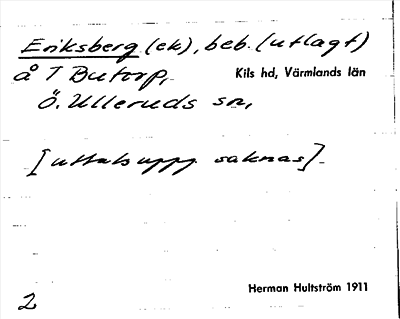 Eriksberg (ek), beb. (utlagt)
å 1 Butorp,
Kils hd, Värmlands län
Ö. Ulleruds sn,
[uttalsuppg. saknas].
Herman Hultström 1911
2